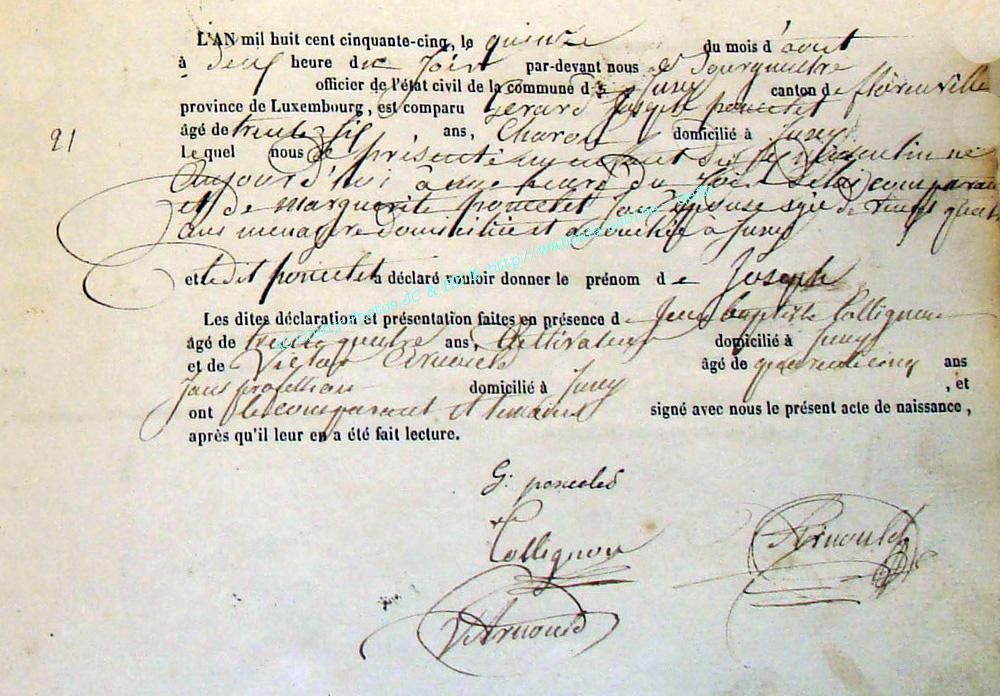 L'AN mil huit cent cinquante-cinq, le quinze du mois d'aout
à deux heure du soir par-devant nous
officier de l'état civil de la commune d Jamoigne canton de florenville
province de Luxembourg, est comparu Gerard Joseph poncelet
âgé de trente six ans, Charon domicilié à
Le quel nous a présenté un enfant du sexe masculin né
aujourd'hui à une heure du soir de lui comparant
et de Marguerite poncelet son épouse agée de vingt quatre
ans menagere domiciliée et accouchée à
et ledit poncelet a déclaré vouloir donner le prénom de Joseph
Les dites déclaration et présentation faites en présence de Jean baptiste Collignon
âgé de trente quatre ans, Cultivateur domicilié à
et de Victor Arnould âgé de quarante cinq ans
sans profession domicilié à , et
ont les comparant et temoins signé avec nous le présent acte de naissance,
après qu'il leur en a été fait lecture.
21
G. poncelet
Collignon
Arnould
V Arnould